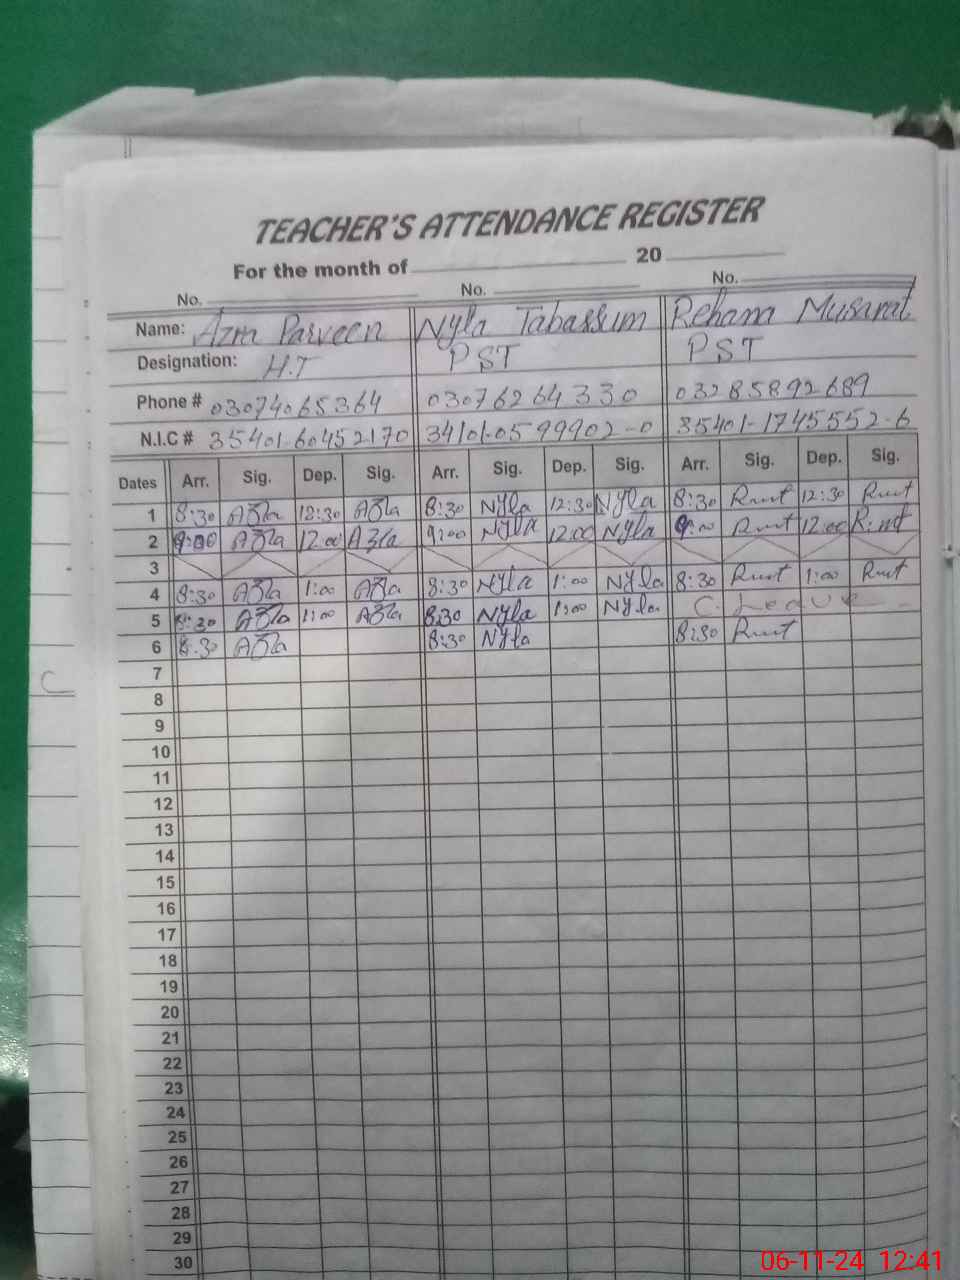 TEACHER'S ATTENDANCE REGISTER
For the month of 20
No. No. No.
Name: Azra Parveen Nyla Tabassum Rehana Musarat
Designation: H.T PST PST
Phone # 03074065364 03076264330 03285892689
N.I.C # 35401-60452170 34101-0599902-0 35401-1745552-6
Dates Arr. Sig. Dep. Sig. Arr. Sig. Dep. Sig. Arr. Sig. Dep. Sig.
1 8:30 Azra 12:30 Azra 8:30 Nyla 12:30 Nyla 8:30 12:30
2 9:00 Azra 12:00 Azra 9:00 Nyla 12:00 Nyla 9:00 12:00
3
4 8:30 Azra 1:00 Azra 8:30 Nyla 1:00 Nyla 8:30 1:00
5 8:30 Azra 1:00 Azra 8:30 Nyla 1:00 Nyla C. Leave
6 8:30 Azra 8:30 Nyla 8:30
7
8
9
10
11
12
13
14
15
16
17
18
19
20
21
22
23
24
25
26
27
28
29
30
C
06-11-24 12:41